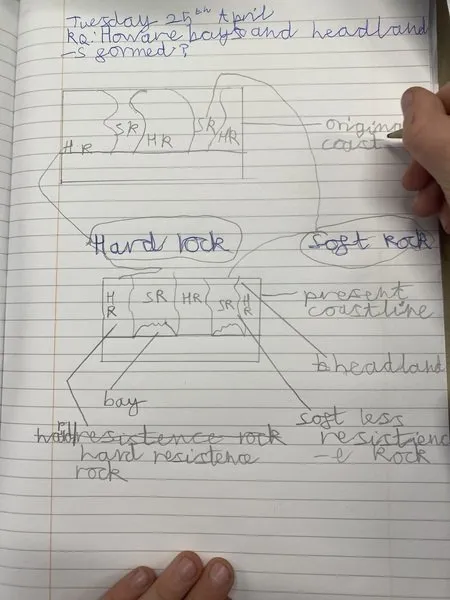 Tuesday 25th April
RQ: How are bays and headland
-s formed?
SR
HR
SR
HR
HR
original
coast
Hard rock
Soft Rock
HR
SR
HR
SR
HR
present
coastline
headland
bay
soft less
hard resistence rock
resistienc
hard resistence
-e Rock
rock